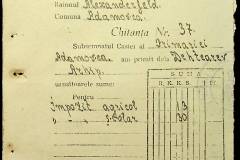 Raionul Alexanderfeld.
Comuna Adamovca.
Chitanța Nr. 37.
Subsemnatul Casier al Primăriei
Adamovca am primit dela Dehtearev
Arhip.
următoarele sume:
SUMA
R. K. K. S.
Pentru
Impozit agricol 13
" " școlar 30